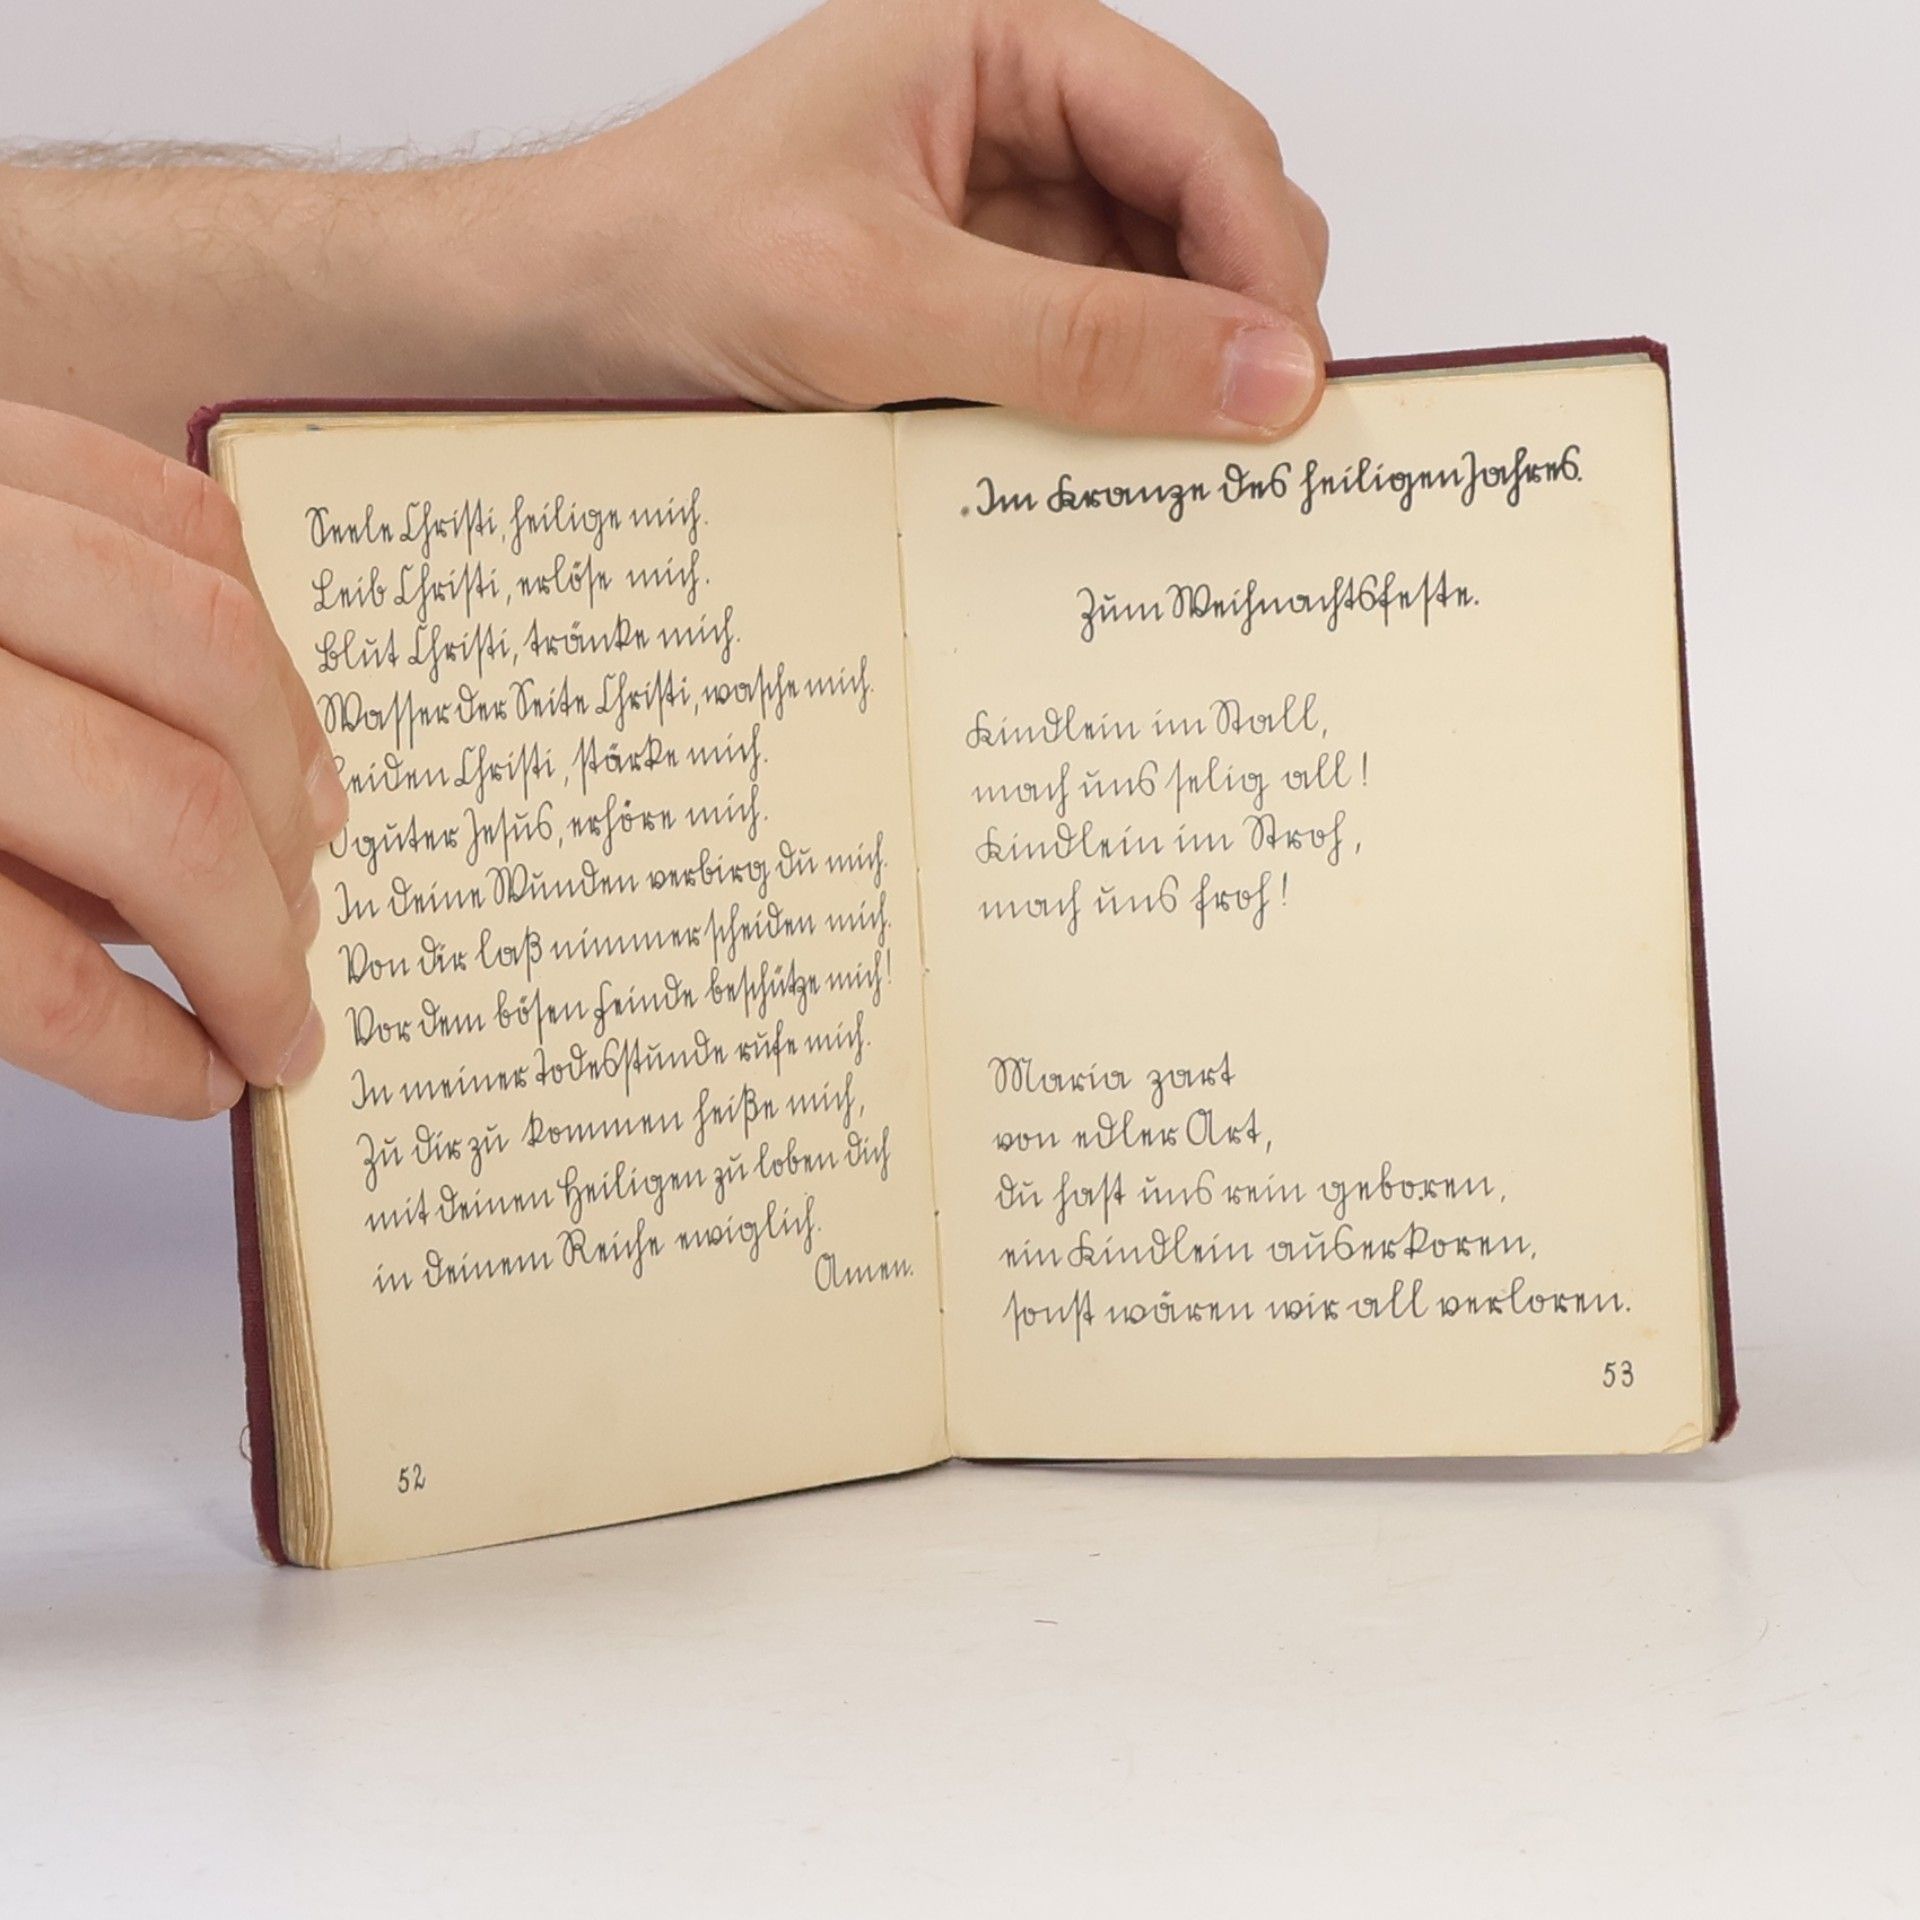 Seele Christi, heilige mich.
Leib Christi, erlöse mich.
Blut Christi, tränke mich.
Wasser der Seite Christi, wasche mich.
Leiden Christi, stärke mich.
O guter Jesus, erhöre mich.
In deine Wunden verbirg du mich.
Von dir laß nimmer scheiden mich.
Vor dem bösen Feinde beschütze mich!
In meiner Todesstunde rufe mich.
Zu dir zu kommen heiße mich,
mit deinen Heiligen zu loben dich
in deinem Reiche ewiglich.
Amen.
52
Im Kranze des heiligen Jahres.
Zum Weihnachtsfeste.
Kindlein im Stall,
mach uns selig all!
Kindlein im Stroh,
mach uns froh!
Maria zart
von edler Art,
du hast uns rein geboren,
ein Kindlein auserkoren,
sonst wären wir all verloren.
53